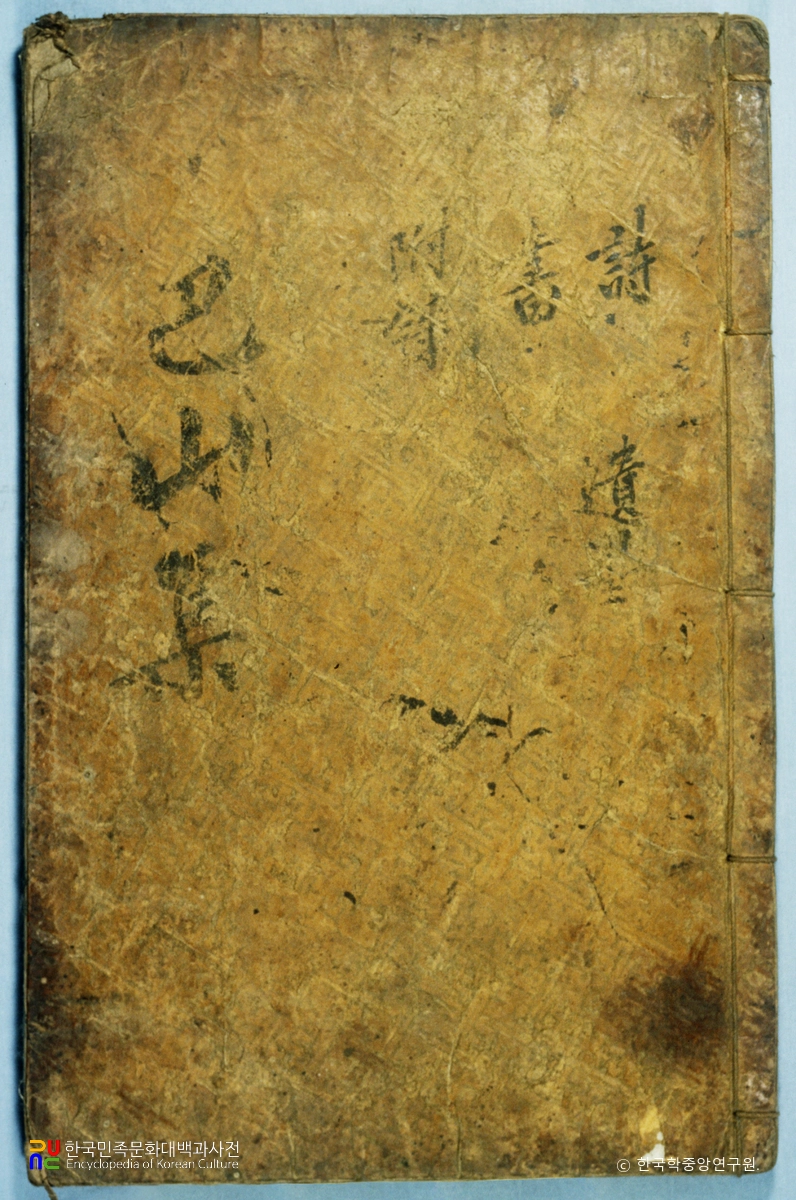 詩 遺墨
書
附
巴山集
한국민족문화대백과사전
Encyclopedia of Korean Culture
© 한국학중앙연구원.